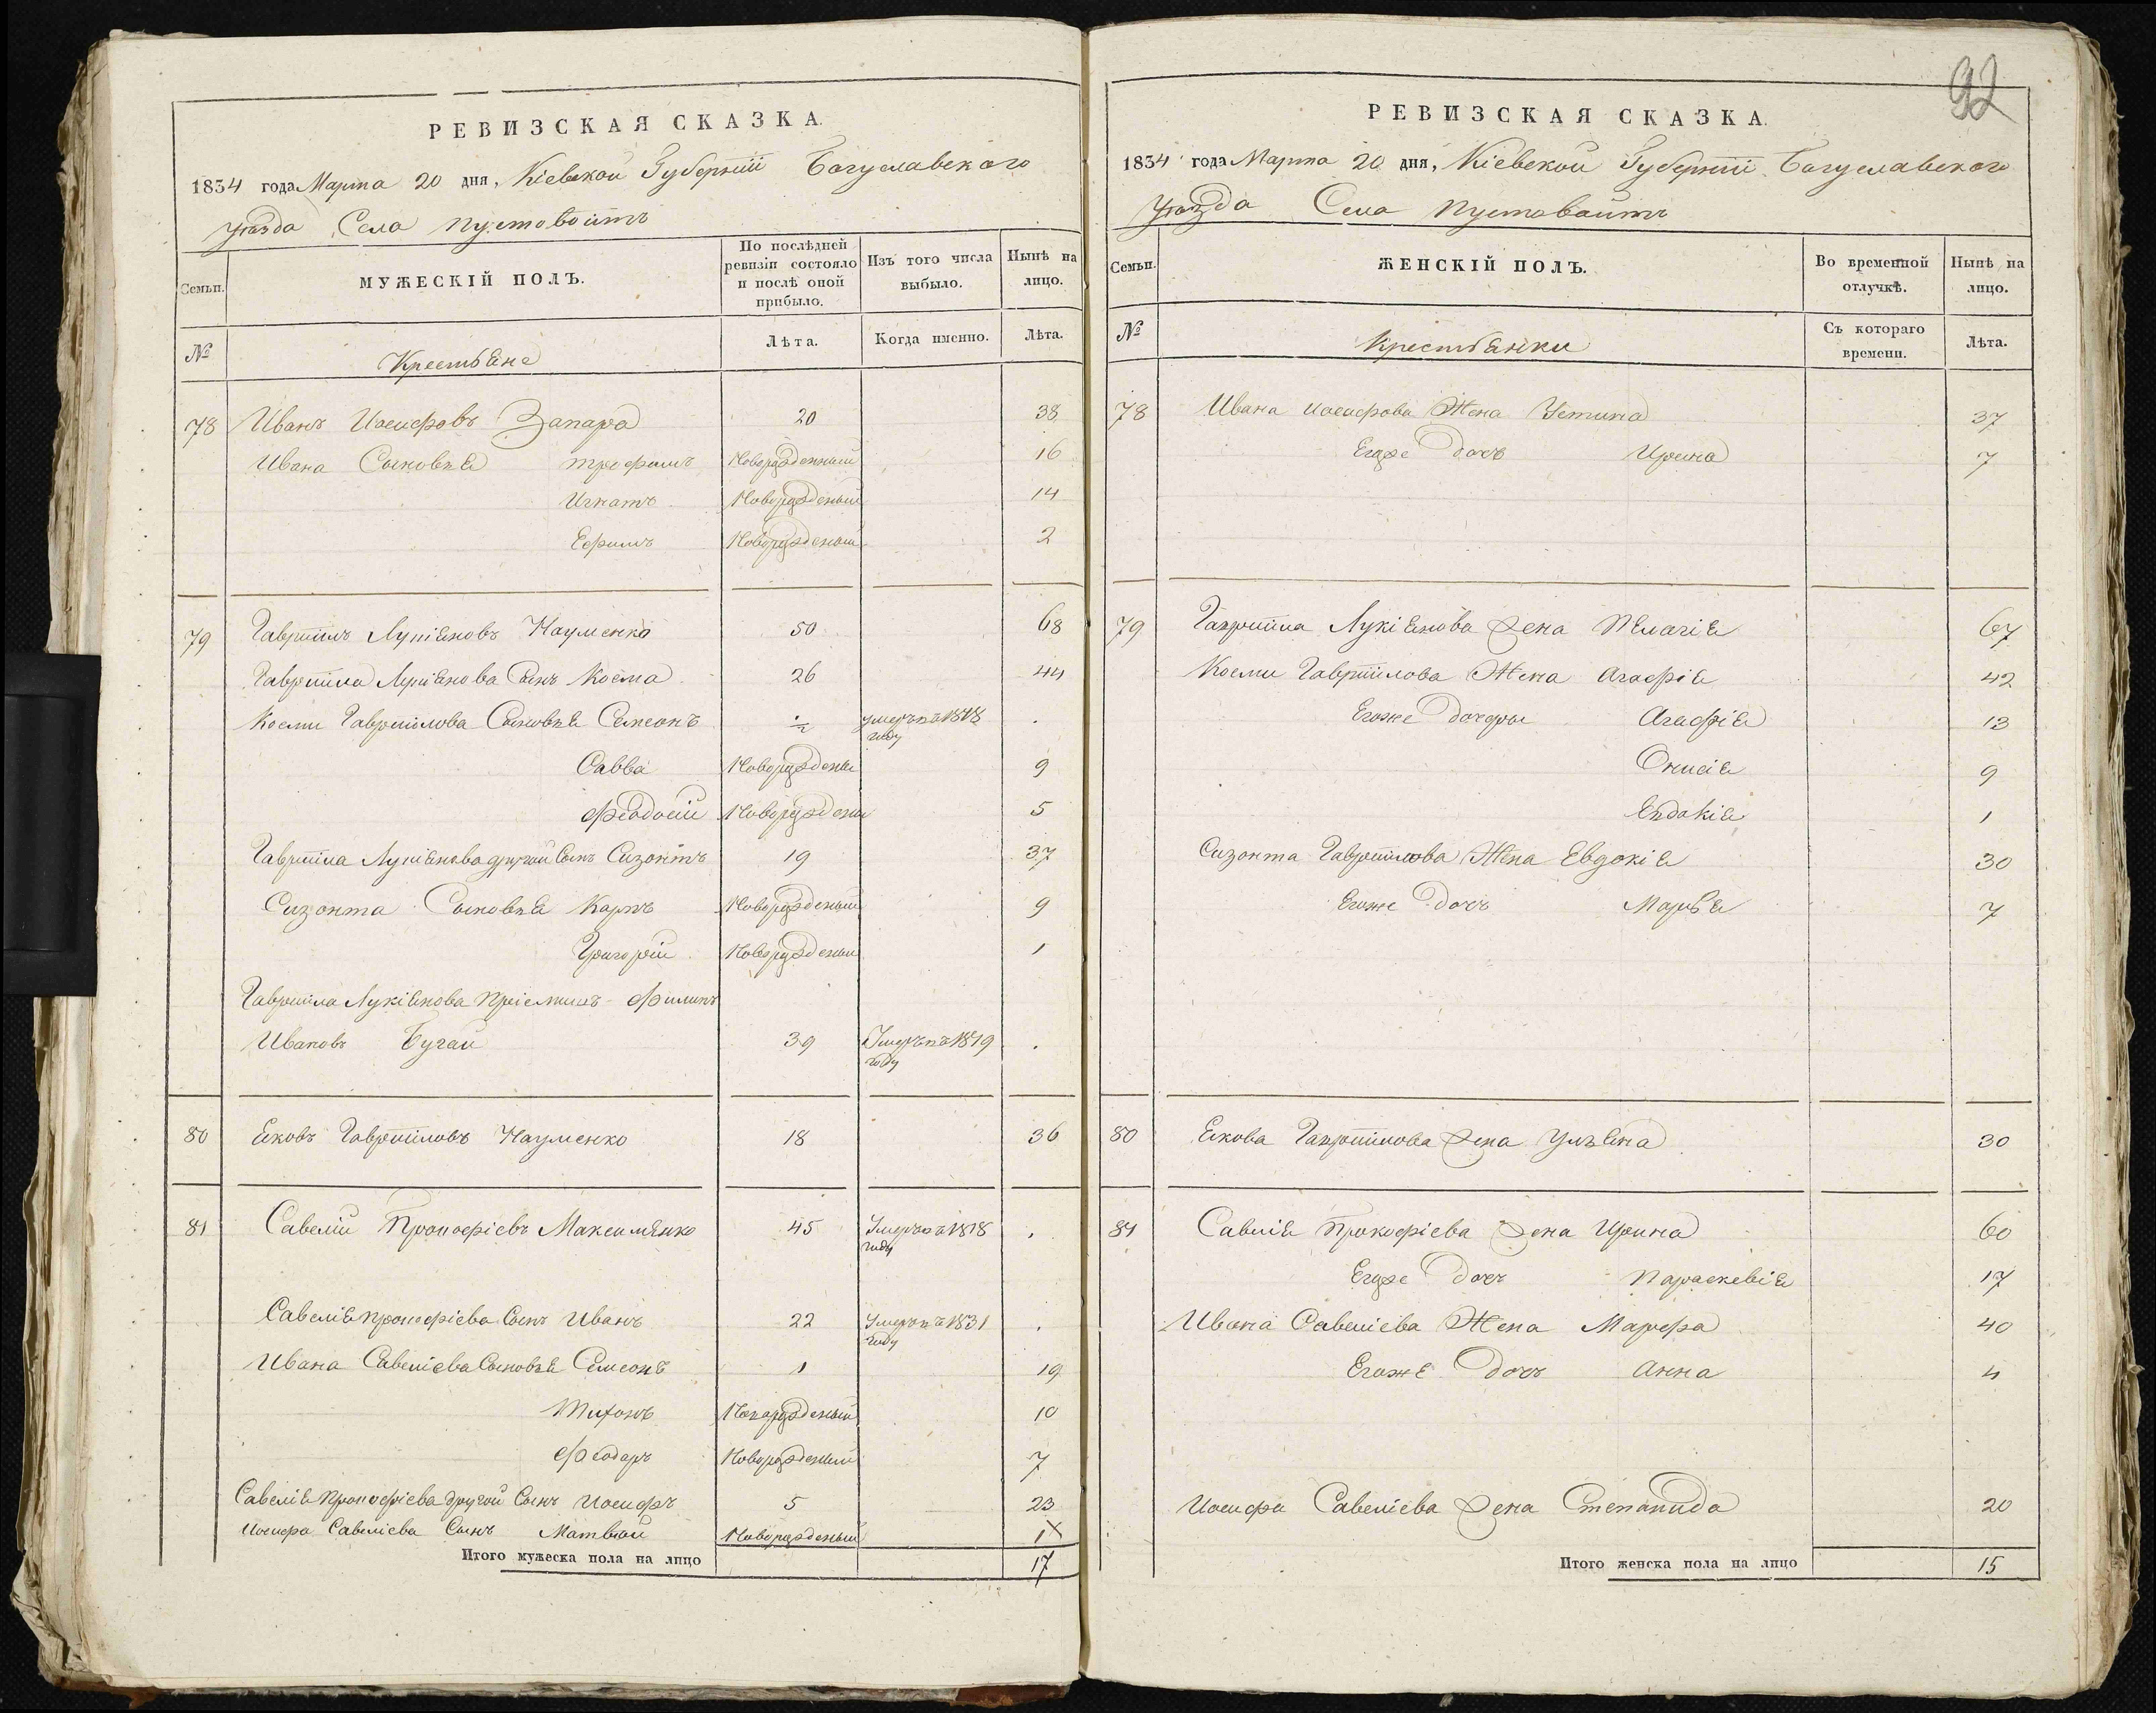 РЕВИЗСКАЯ СКАЗКА.
1834 года Марта 20 дня, Кіевской Губерніи Богуславского
уѣзда Села Пустовоитъ
Семьи. МУЖЕСКІЙ ПОЛЪ. По послѣдней ревизіи состояло и послѣ оной прибыло. Изъ того числа выбыло. Нынѣ на лицо.
№ Крестьяне Лѣта. Когда именно. Лѣта.
78 Иванъ Иосифовъ Запара 20 38
Ивана Сыновья Трофимъ Новорожденный 16
Игнатъ Новорожденый 14
Ефимъ Новорожденый 2
79 Гавріилъ Лукіяновъ Науменко 50 68
Гавріила Лукіянова Сынъ Косма 26 44
Косми Гавріилова Сыновья Симеонъ ½ умеръ въ 1818 году .
Савва Новорождены 9
Феодосій Новорождены 5
Гавріила Лукіянова другой Сынъ Сизонтъ 19 37
Сизонта Сыновья Карпъ Новорожденый 9
Григорій Новорожденый 1
Гавріила Лукіянова Пріемышъ Филипъ
Ивановъ Бугай 39 Умеръ въ 1819 году .
80 Яковъ Гавріиловъ Науменко 18 36
81 Савелій Прокофіевъ Максименко 45 Умеръ въ 1818 году .
Савелія Прокофіева Сынъ Иванъ 22 Умеръ въ 1831 году .
Ивана Савеліева Сыновья Семеонъ 1 19
Тихонъ Новорожденый 10
Феодоръ Новорожденый 7
Савелія Прокофіева другой Сынъ Иосифъ 5 23
Иосифа Савеліева Сынъ Матвѣй Новорожденый 1 х
Итого мужеска пола на лицо 17
92
РЕВИЗСКАЯ СКАЗКА.
1834 года Марта 20 дня, Кіевской Губерніи Богуславского
Уѣзда Села Пустовоитъ
Семьи. ЖЕНСКІЙ ПОЛЪ. Во временной отлучкѣ. Нынѣ на лицо.
№ Крестьянки Съ котораго времени. Лѣта.
78 Ивана Иосифова Жена Устина 37
Егоже Дочь Ирина 7
79 Гавріила Лукіянова Жена Пелагія 67
Косми Гавріилова Жена Агафія 42
Егоже Дочери Агафія 13
Онисія 9
Евдокія 1
Сизонта Гавріилова Жена Евдокія 30
Егоже Дочь Марья 7
80 Якова Гавріилова Жена Ульяна 30
81 Савелія Прокофіева Жена Ирина 60
Егоже Дочь Параскевія 17
Ивана Савеліева Жена Марфа 40
Егоже Дочь Анна 4
Иосифа Савеліева Жена Степанида 20
Итого женска пола на лицо 15